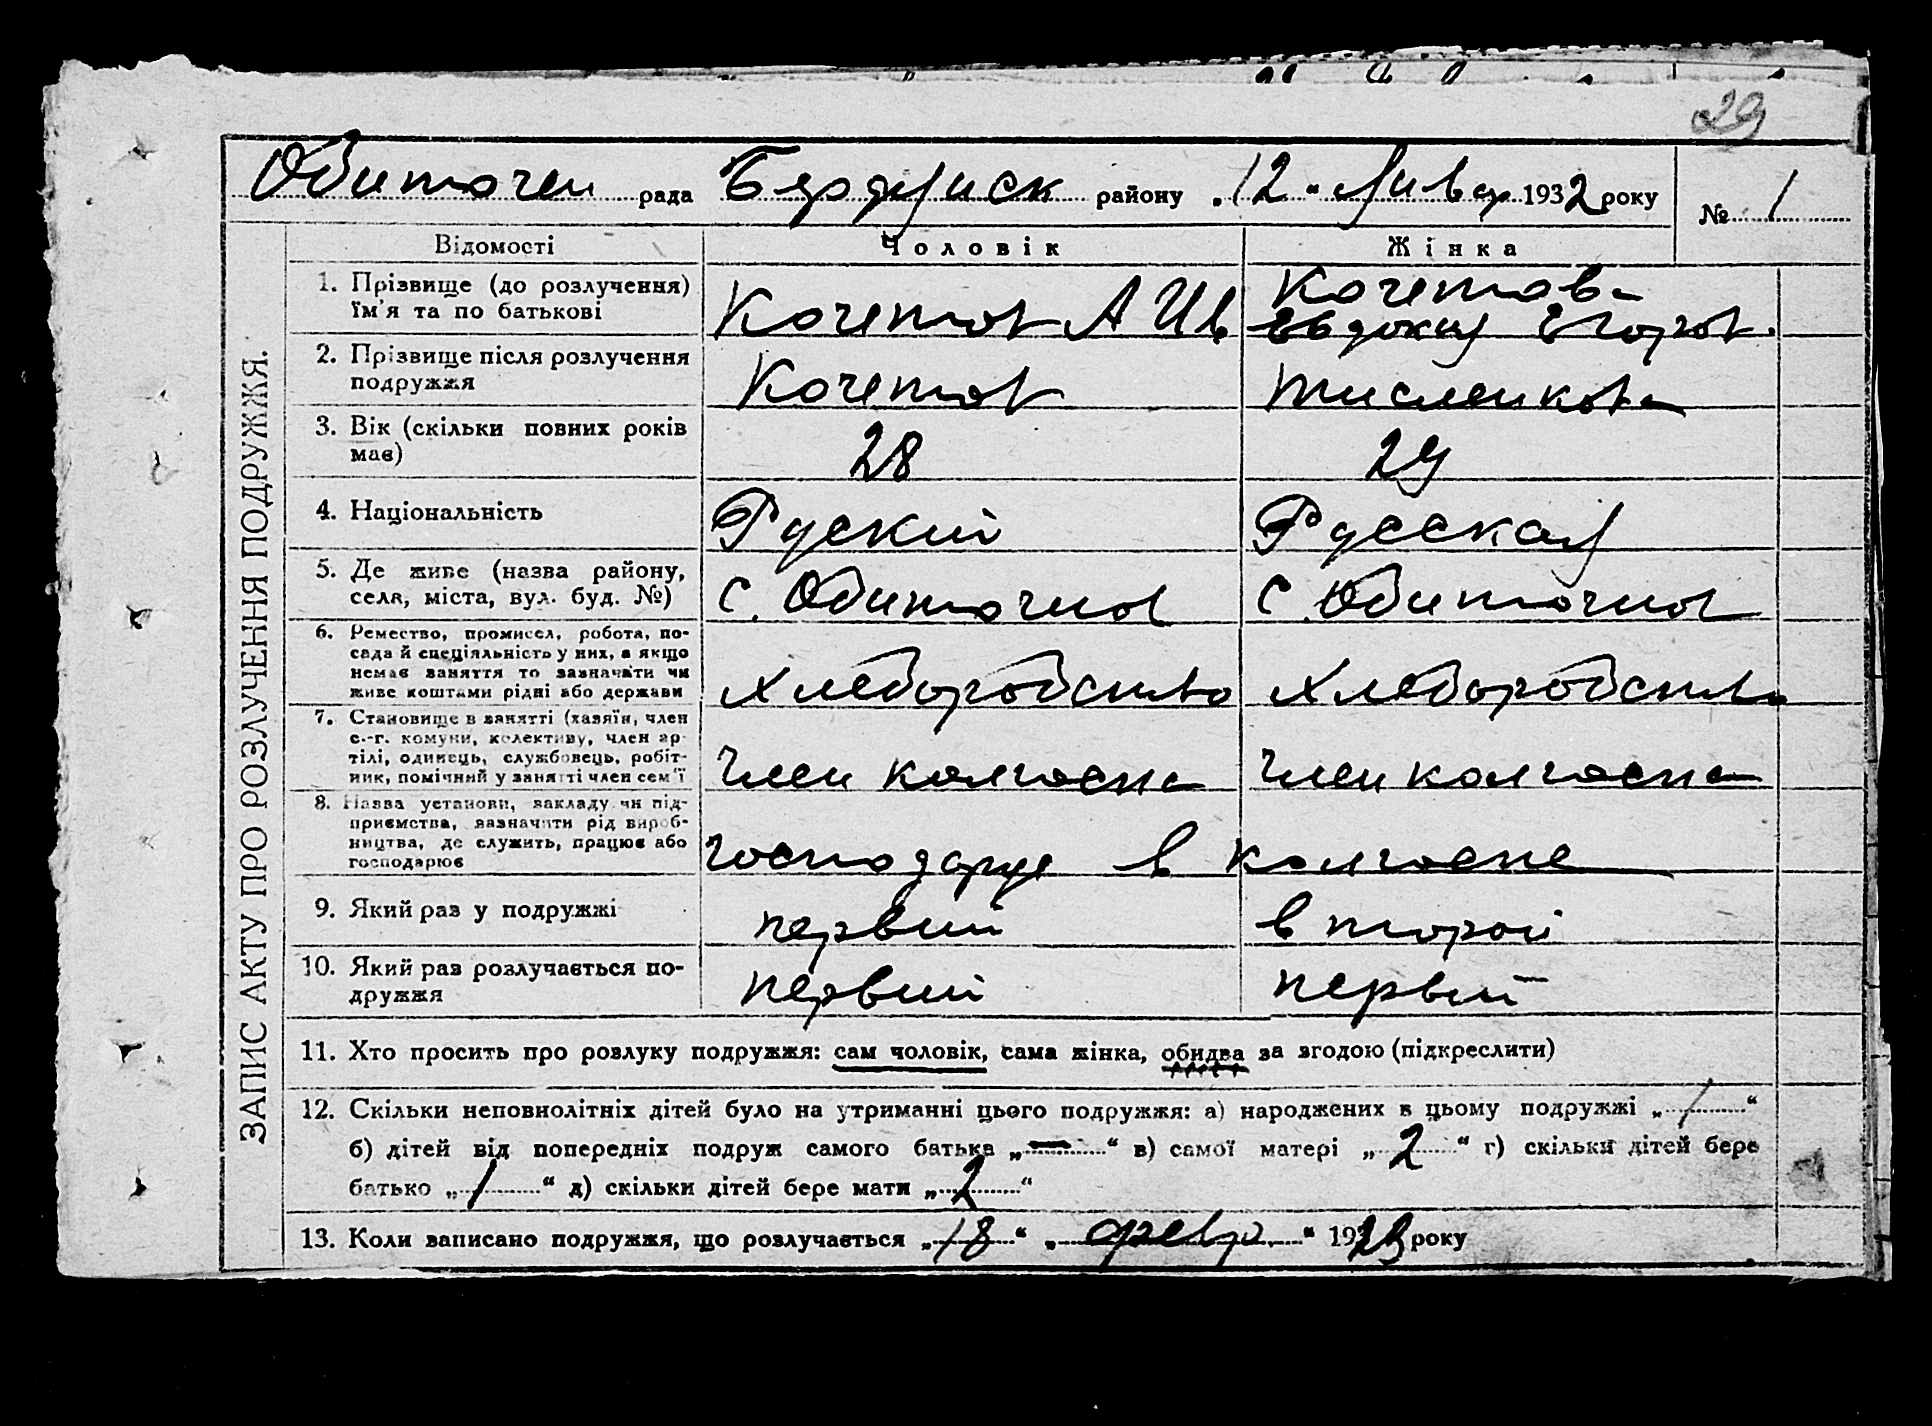 29
Обиточен рада Бердянск району „12“ Январ 1932 року № 1
ЗАПИС АКТУ ПРО РОЗЛУЧЕННЯ ПОДРУЖЖЯ.
Відомості Чоловік Жінка
1. Прізвище (до розлучення) їм'я та по батькові
Кочетов А Ив
Кочетова
Евдокия Егоров.
2. Прізвище після розлучення подружжя
Кочетов
3. Вік (скільки повних років має)
28 29
4. Національність
Руский Русская
5. Де живе (назва району, села, міста, вул. буд. №)
с. Обиточное с. Обиточное
6. Ремество, промисел, робота, по-
сада й спеціяльність у них, а якщо
немає заняття то зазначити чи
живе коштами рідні або держави
Хлеборобство Хлеборобство
7. Становище в занятті (хазяїн, член
с.-г. комуни, колективу, член ар-
тілі, одинець, службовець, робіт-
ник, помічний у занятті член сем'ї
Член колгоспа Член колгоспа
8. Назва установи, закладу чи під-
приємства, зазначити рід вироб-
ництва, де служить, працює або
господарює
господарує в колгоспе
9. Який раз у подружжі
первий второй
10. Який раз розлучається по-
дружжя
первий первий
11. Хто просить про розлуку подружжя: сам чоловік, сама жінка, обидва за згодою (підкреслити)
12. Скільки неповнолітніх дітей було на утриманні цього подружжя: а) народжених в цьому подружжі „1“
б) дітей від попередніх подруж самого батька „—“ в) самої матері „2“ г) скільки дітей бере
батько „1“ д) скільки дітей бере мати „2“
13. Коли записано подружжя, що розлучається „18“ „февр.“ 1923 року